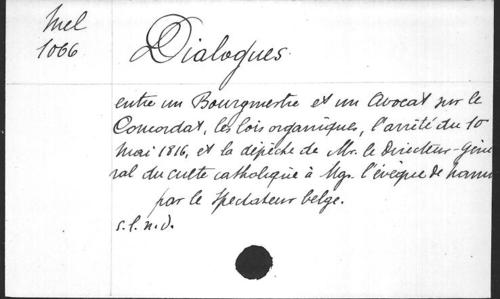 Mel
1066
Dialogues
entre un Bourgmestre et un Avocat sur le
Concordat, les lois organiques, l'arrêté du 10
mai 1816, et la dépêche de Mr. le Directeur-géné-
ral du culte catholique à Mgr. l'évêque de Namur
par le Spectateur belge.
s.l.n.d.